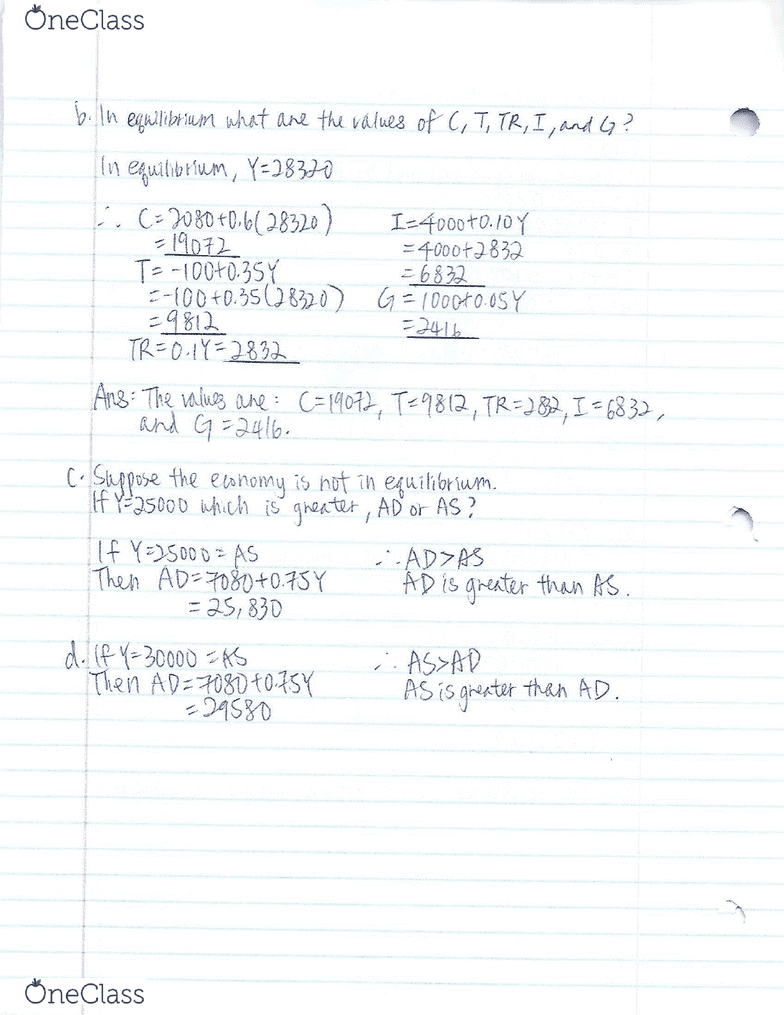 OneClass
b. In equilibrium what are the values of C, T, TR, I, and G?
In equilibrium, Y=28320
∴ C=2080+0.6(28320)
=19072
T=-100+0.35Y
=-100+0.35(28320)
=9812
TR=0.1Y=2832
I=4000+0.10Y
=4000+2832
=6832
G=1000+0.05Y
=2416
Ans: The values are: C=19072, T=9812, TR=2832, I=6832,
and G=2416.
C. Suppose the economy is not in equilibrium.
If Y=25000 which is greater, AD or AS?
If Y=25000=AS
Then AD=7080+0.75Y
=25,830
∴ AD>AS
AD is greater than AS.
d. If Y=30000=AS
Then AD=7080+0.75Y
=29580
∴ AS>AD
AS is greater than AD.
OneClass